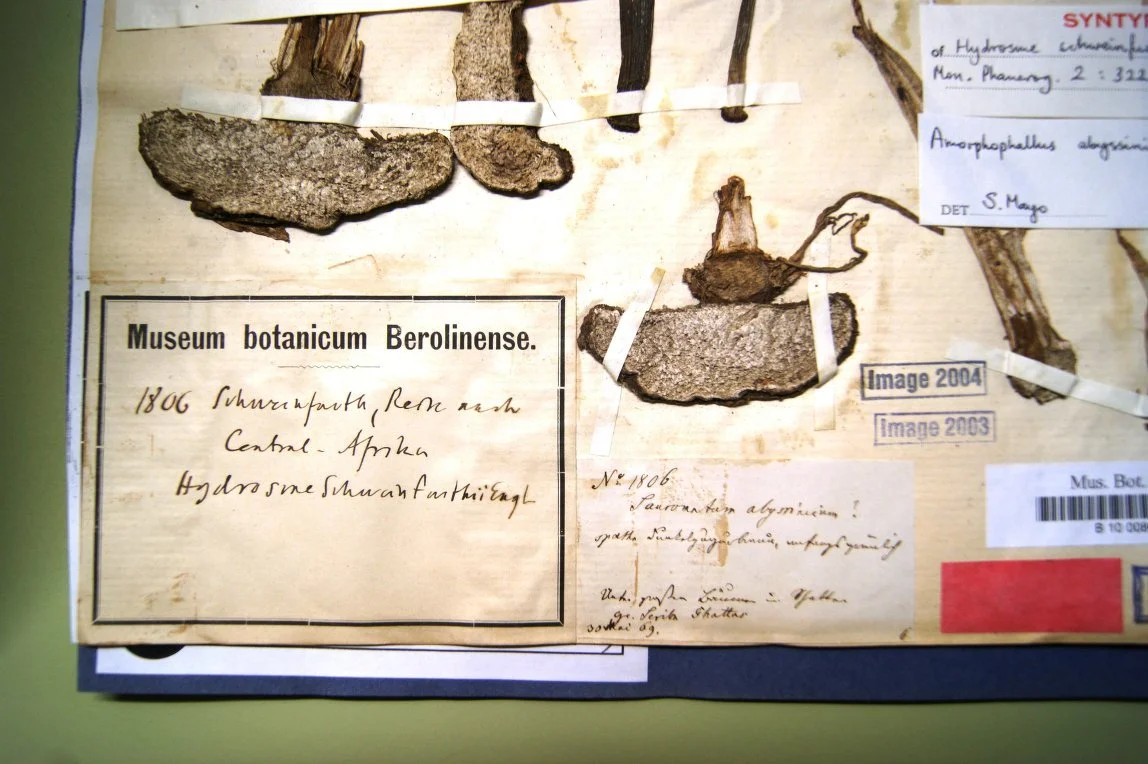 SYNTY
of Hydrosme schweinfu
Mon. Phanerog. 2 : 322
Amorphophallus abyssini
DET S. Mayo
Museum botanicum Berolinense.
1806 Schweinfurth, Reise nach
Central-Afrika
Hydrosme Schweinfurthii Engl
Image 2004
Image 2003
No 1806
Sauromatum abyssinicum !
spatha
Unter großen Bäumen in
gr. Seriba Ghattas
30 Mai 69.
Mus. Bot.
B 10 006
6